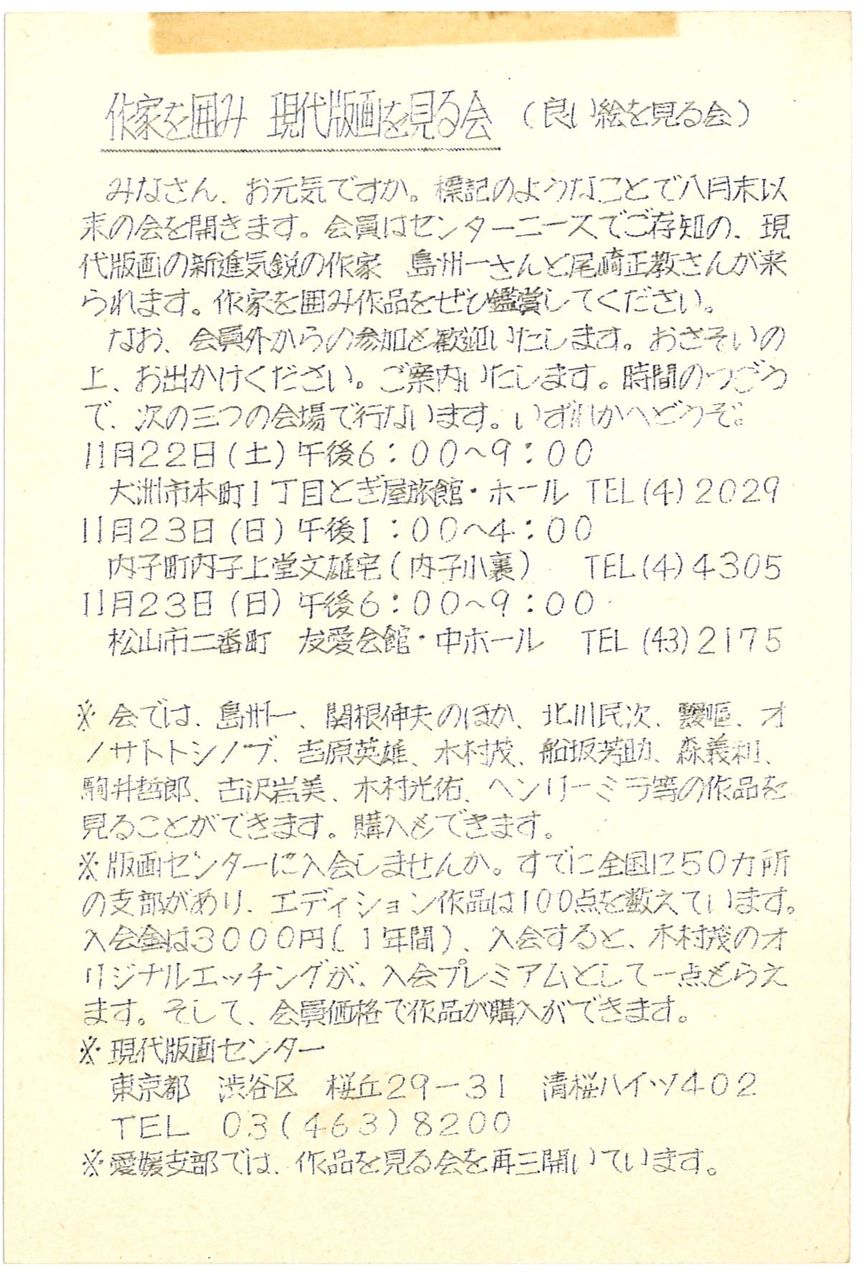 作家を囲み 現代版画を見る会 (良い絵を見る会)
みなさん、お元気ですか。標記のようなことで八月末以
来の会を開きます。会員はセンターニースでご存知の、現
代版画の新進気鋭の作家 島州一さんと尾崎正教さんが来
られます。作家を囲み作品をぜひ鑑賞してください。
なお、会員外からの参加も歓迎いたします。おさそいの
上、お出かけください。ご案内いたします。時間のつごう
で、次の三つの会場で行ないます。いずれかへどうぞ。
11月22日(土)午後6:00~9:00
大洲市本町1丁目とぎ屋旅館・ホール TEL(4)2029
11月23日(日)午後1:00~4:00
内子町内子上堂文雄宅(内子小裏) TEL(4)4305
11月23日(日)午後6:00~9:00
松山市二番町 友愛会館・中ホール TEL(43)2175
※会では、島州一、関根伸夫のほか、北川民次、靉嘔、オ
ノサトトシノブ、吉原英雄、木村茂、船坂芳助、森義利、
駒井哲郎、古沢岩美、木村光佑、ヘンリーミラ等の作品を
見ることができます。購入もできます。
※版画センターに入会しませんか。すでに全国に50カ所
の支部があり、エディション作品は100点を数えています。
入会金は3000円(1年間)、入会すると、木村茂のオ
リジナルエッチングが、入会プレミアムとして一点もらえ
ます。そして、会員価格で作品が購入ができます。
※現代版画センター
東京都 渋谷区 桜丘29-31 清桜ハイツ402
TEL 03(463)8200
※愛媛支部では、作品を見る会を再三開いています。